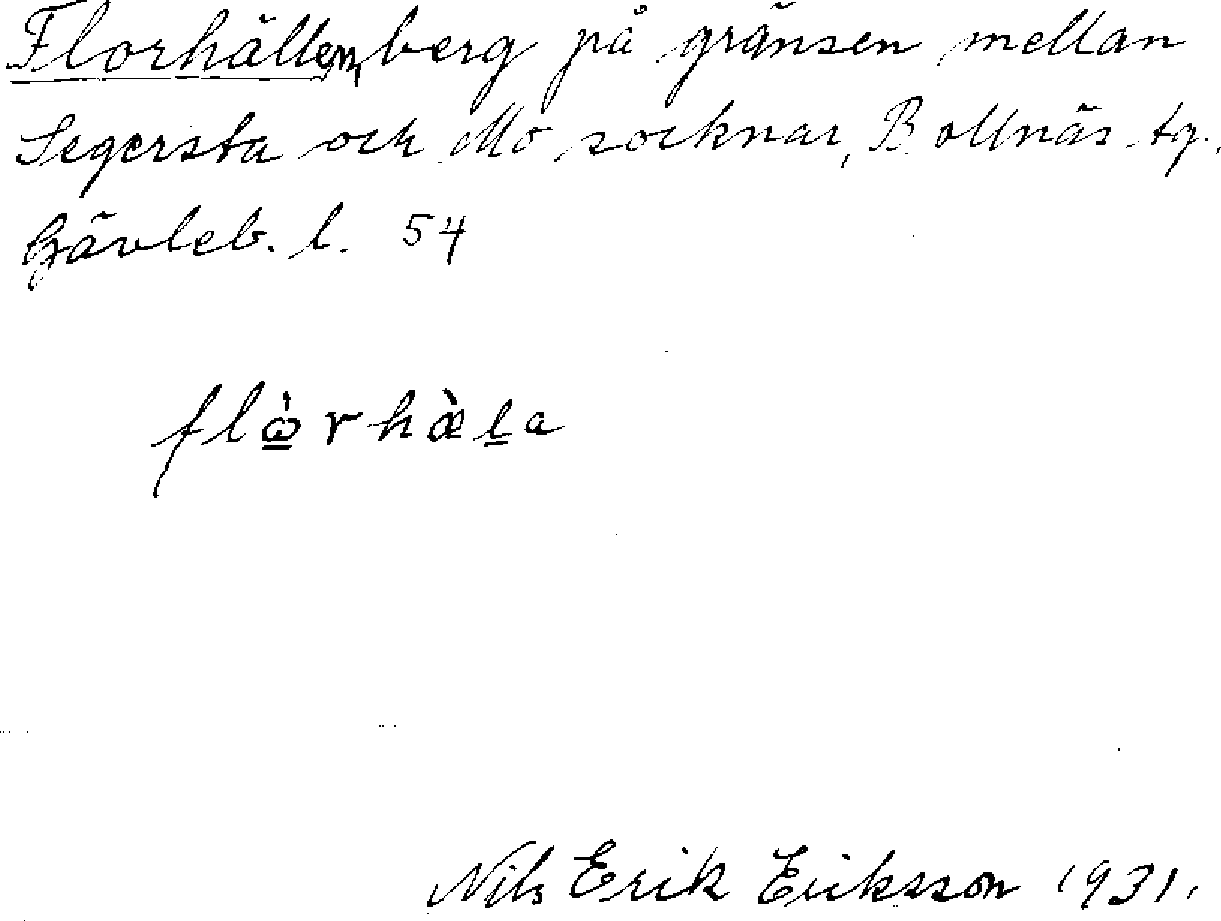 Florhällen, berg på gränsen mellan
Segersta och Mo socknar, Bollnäs tg.
Gävleb. l. 54
flὼ̲rhæ̀l̲a
Nils Erik Eriksson 1931.